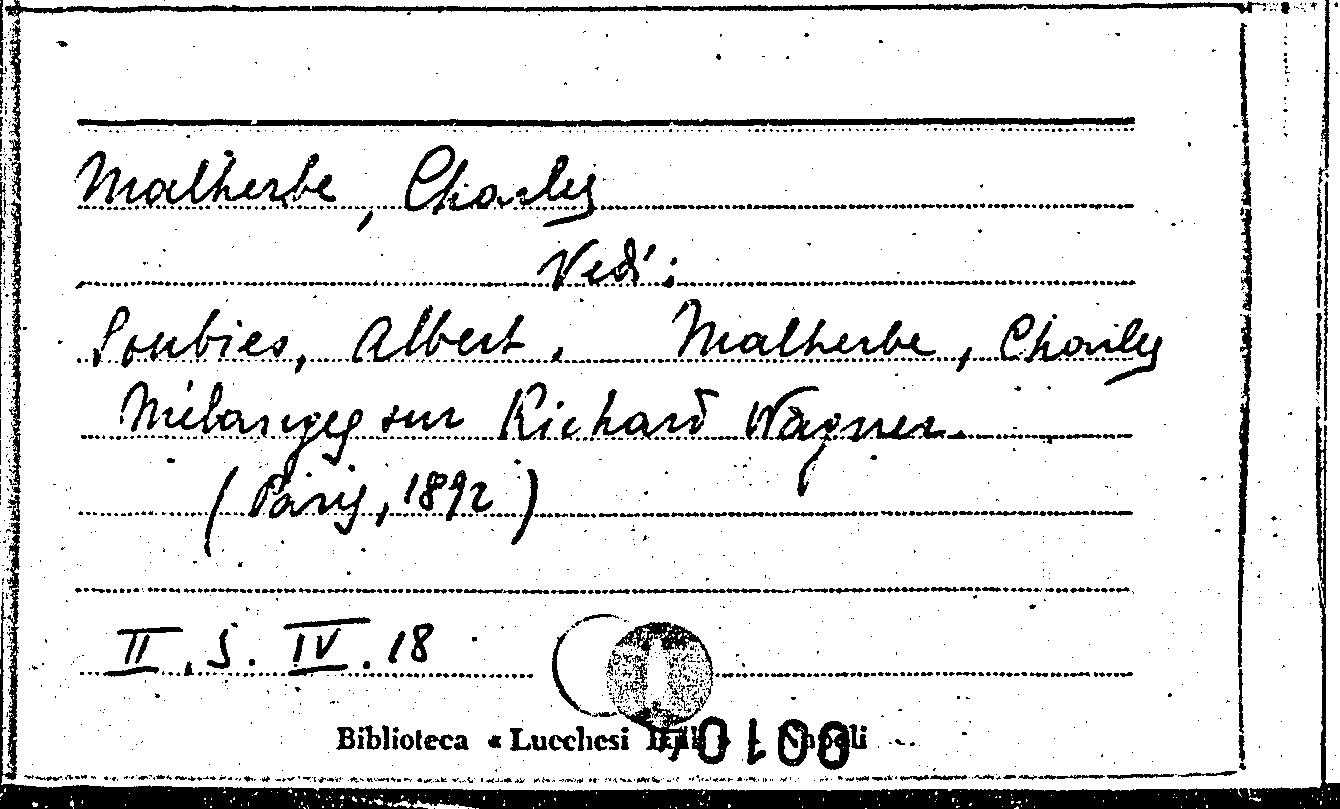 Malherbe, Charles
Vedi:
Soubies, Albert. Malherbe, Charles
Mélanges sur Richard Wagner.
(Paris, 1892)
II. 5. IV. 18
Biblioteca « Lucchesi Palli » Napoli